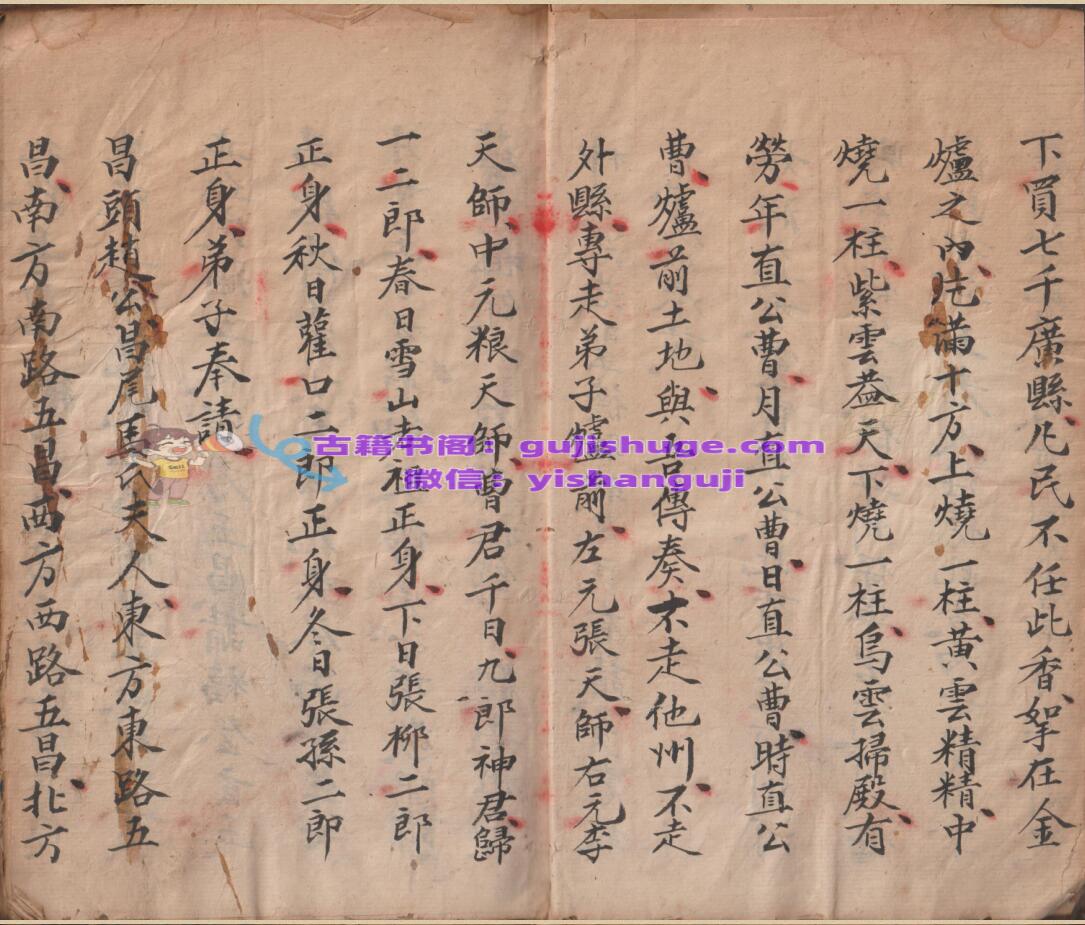 下買七千廣縣凡民不任此香拏在金
爐之內先滿十方上燒一柱黃雲精精中
燒一柱紫雲蓋天下燒一柱烏雲掃殿有
勞年直公曹月直公曹日直公曹時直公
曹爐前土地與吾傳奏不走他州不走
外縣專走弟子爐前左元張天師右元李
天師中元粮天師曾君千日九郎神君歸
一二郎春日雪山老祖正身下日張柳二郎
正身秋日蘿口二郎正身冬日張孫二郎
正身弟子奉請
昌頭趙公昌尾馬氏夫人東方東路五
昌南方南路五昌西方西路五昌北方
古籍书阁：gujishuge.com
微信：yishanguji